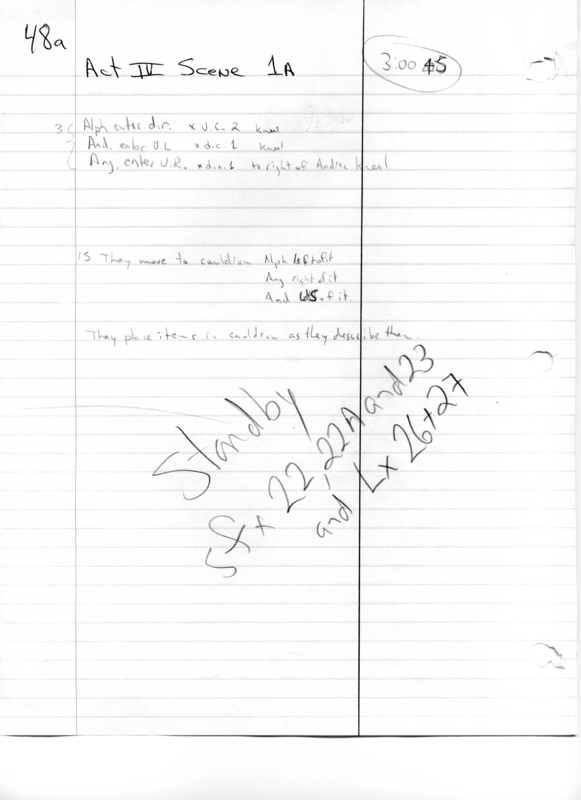 48a
Act IV Scene 1A
3:00 45
3 Alph enter d.r. x U.C. 2 kneel
And. enter U.L x d.c. 1 kneel
Ang. enter U.R. x d.c. 1 to right of Andrea kneel
15 They move to cauldron Alph left of it
Ang right of it
And US of it
They place items in cauldron as they describe them.
Standby
SFx 22, 22A and 23
and Lx 26+27